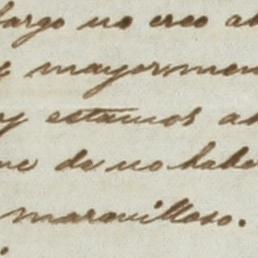 bargo no creo ab
mayormen
y estamos ab
ue de no habe
maravilloso.